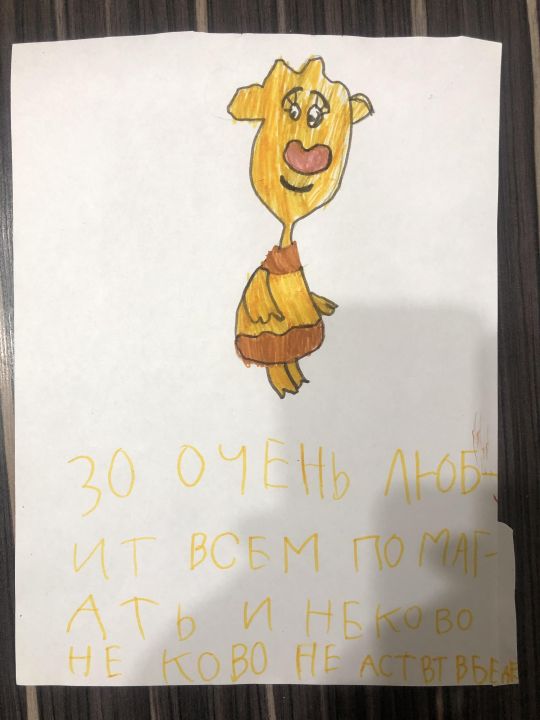 ЗО ОЧЕНЬ ЛЮБ-
ИТ ВСЕМ ПОМАГ-
АТЬ И НЕКОВО
НЕ КОВО НЕ АСТВТ ВБЕДЕ